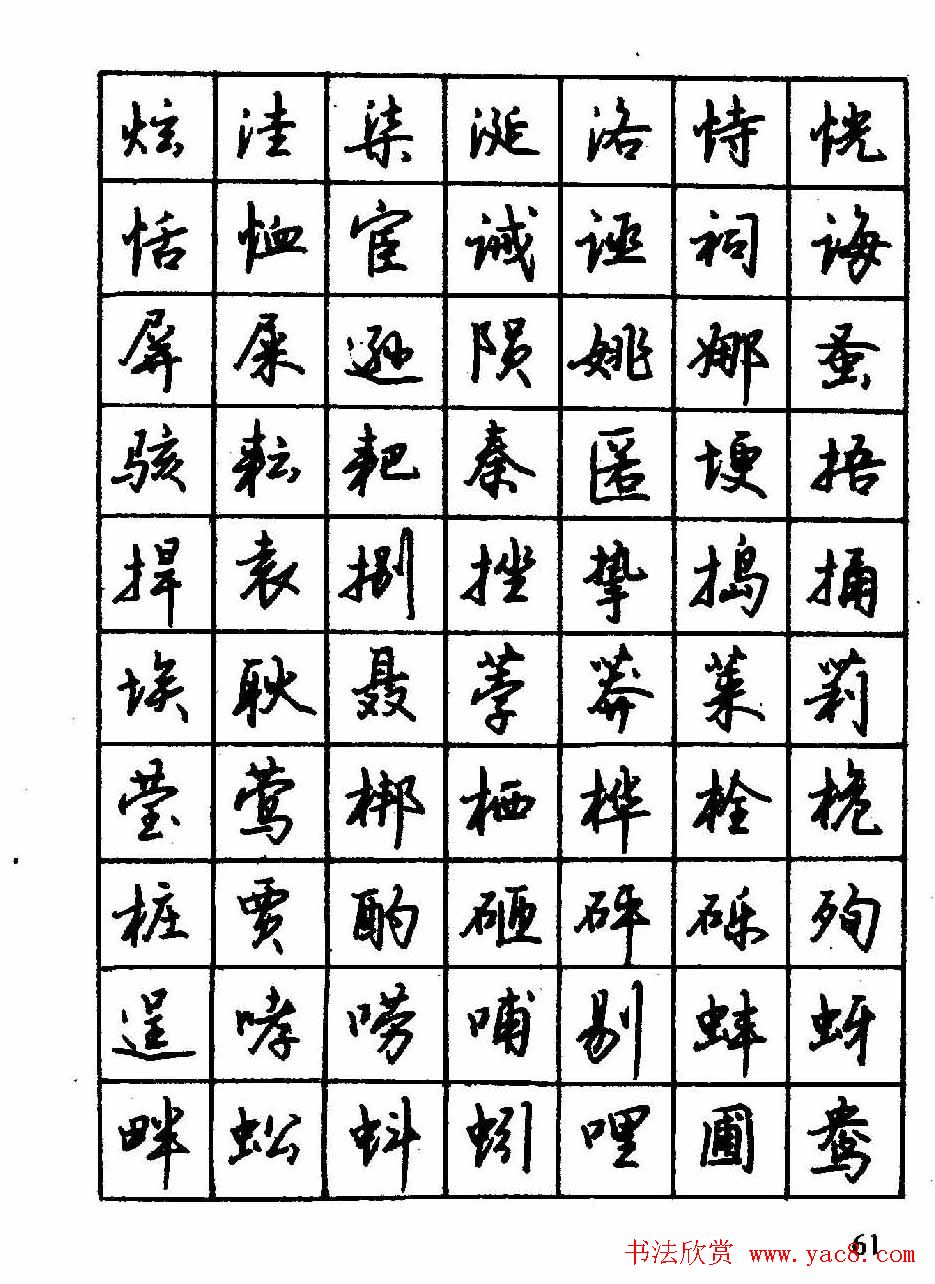 炫洼柒涎洛恃恍
恬恤宦诫诬祠诲
屏屎逊陨姚娜蚤
骇耘耙秦匿埂捂
捍袁捌挫挚捣捅
埃耿聂荸莽莱莉
莹莺梆栖桦栓桅
桩贾酌砸砰砾殉
逞哮唠哺剔蚌蚜
畔蚣蚪蚓哩圃鸯
61
书法欣赏 www.yac8.com